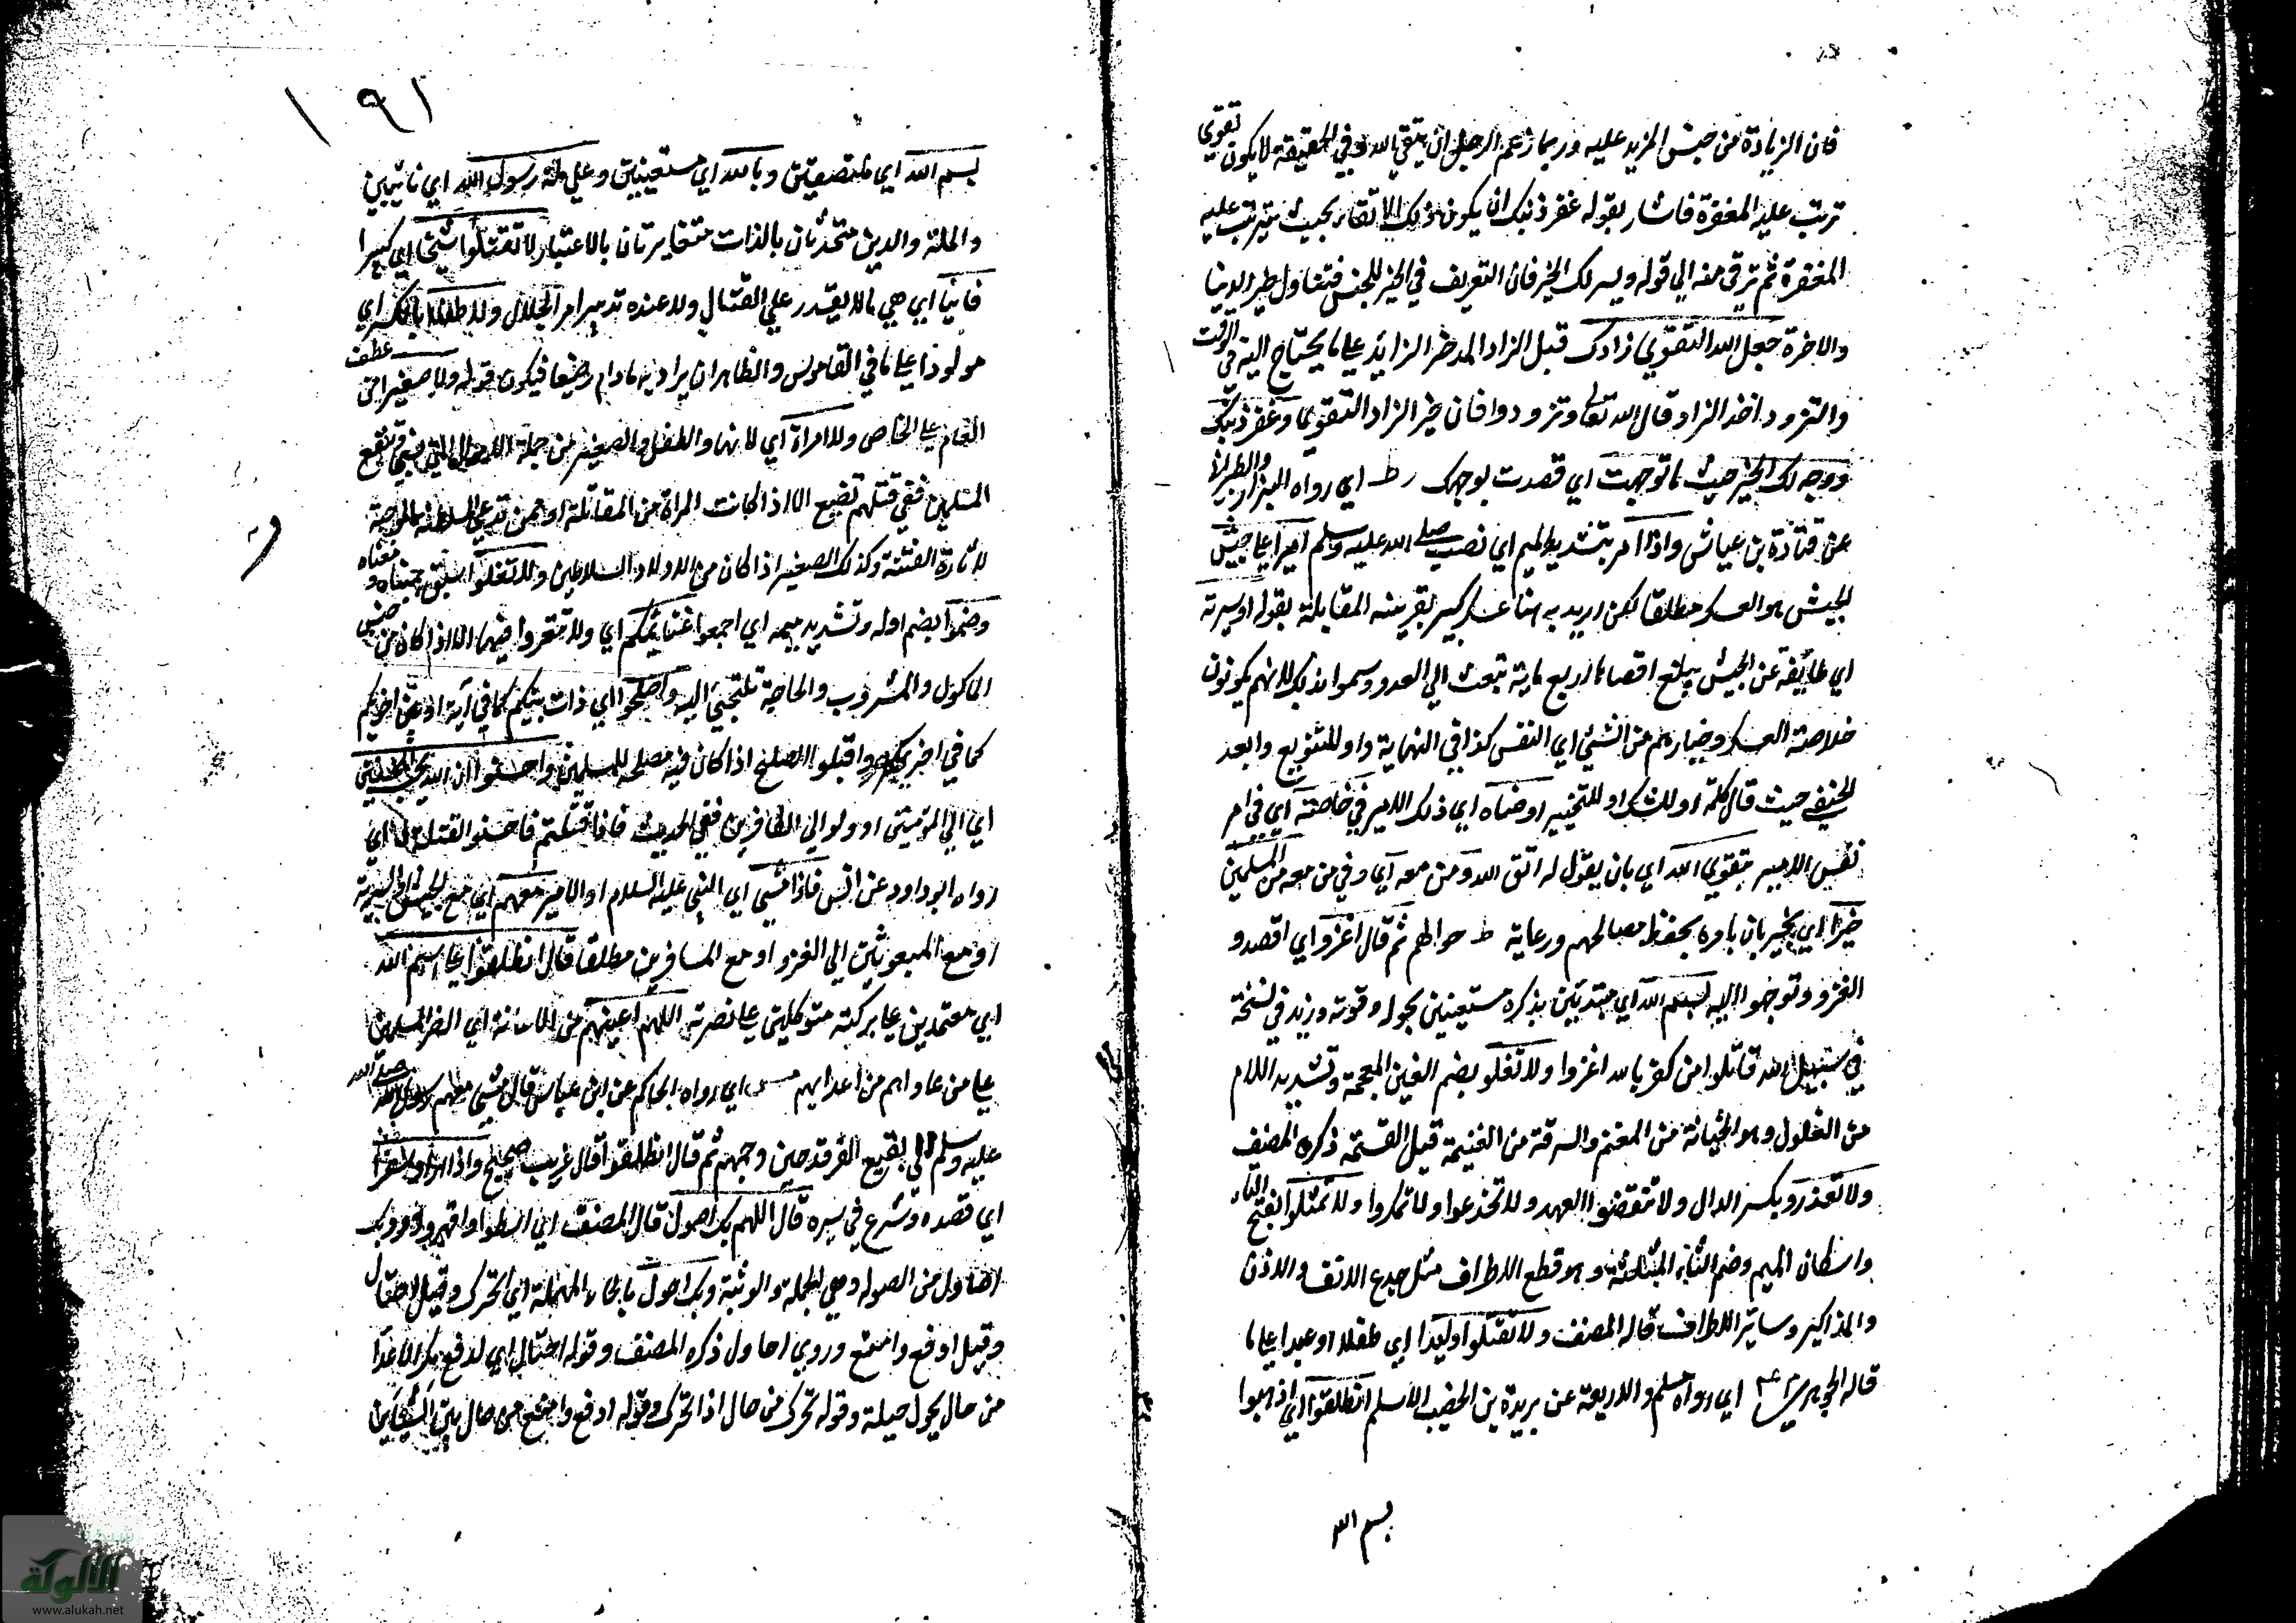 فان الزيادة من جنس المزيد عليه وربما زعم الرجل ان يتقي الله وفي الحقيقة لا يكون تقوي
ترتب عليه المغفرة فاشار بقوله غفر ذنبك ان يكون ذلك الاتقاء بحيث يترتب عليه
المغفرة ثم ترقى منه الي قوله ويسر لك الخير فان التعريف في الخير للجنس فتناول خير الدنيا
والاخرة جعل الله التقوي زادك قيل الزاد المدخر الزايد علي ما يحتاج اليه في الوقت
والتزود اخذ الزاد قال الله تعالى وتزودوا فان خير الزاد التقوي وغفر ذنبك
ووجه لك الخير حيث ما توجهت اي قصدت بوجهك ر ط اي رواه البزار والطبراني
عن قتادة بن عياش واذا امر بتشديد الميم اي نصب صلى الله عليه وسلم اميرا علي جيش
الجيش هو العسكر مطلقا لكن اريد به هنا عسكر كبير بقرينة المقابلة بقوله او سرية
اي طايفة عن الجيش يبلغ اقصاها اربع ماية تبعث الي العدو وسموا بذلك لانهم يكونون
خلاصة العسكر وخيارهم من الشيء اي النفس كذا في النهاية واو للتنويع وابعد
الحنفي حيث قال كلمة او للشك او للتخيير اوصاه اي ذلك الامير في خاصته اي في امر
نفس الامير بتقوي الله اي بان يقول له اتق الله ومن معه اي وفي من معه من المسلمين
خيرا اي بخير بان يامره بحفظ مصالحهم ورعاية ط حوالهم ثم قال اغزو اي اقصدو
الغزو وتوجهوا اليه بسم الله اي مبتديين بذكره مستعينين بحوله وقوته وزيد في نسخة
في سبيل الله قاتلوا من كفر بالله اغزوا ولا تغلو بضم الغين المعجمة وتشديد اللام
من الغلول وهو الخيانة من المغنم والسرقة من الغنيمة قبل القسمة ذكره المصنف
ولا تغدرو بكسر الدال ولا تنقضوا العهد ولا تخدعوا ولا تمكروا ولا تمثلوا بفتح التاء
واسكان الميم وضم الثاء المثلثة وهو قطع الاطراف مثل جدع الانف والاذن
والمذاكير وساير الاطراف قاله المصنف ولا تقتلوا وليدا اي طفلا او عبدا علي ما
قاله الجوهري م عه اي رواه مسلم والاربعة عن بريدة بن الحصيب الاسلمي انطلقوا اي اذهبوا
بسم الله
١٩١
بسم الله اي ملتصقين وبالله اي مستعينين وعلي ملة رسول الله اي ثابتين
والملة والدين متحدتان بالذات متغايرتان بالاعتبار لا تقتلوا شيخا اي كبيرا
فانيا اي هي لا يقدر علي القتال ولا عنده تدبير امر الجلال ولا طفلا بالكسر اي
مولودا علي ما في القاموس والظاهر ان يراد به ما دام رضيعا فيكون قوله ولا صغيرا من عطف
العام علي الخاص ولا امراة اي لانها والطفل والصغير من جملة الاموال التي ينتفع
المسلمين ففي قتلهم تضيع الا اذا كانت المراة من المقاتلة او ممن تدعي السلطنة الموجبة
لاثارة الفتنة وكذلك الصغير اذا كان من اولاد السلاطين ولا تغلوا سبق مبناه ومعناه
وضموا بضم اوله وتشديد ميمه اي اجمعوا غنايمكم اي ولا تتصرفوا فيها الا اذا كان من جنس
الماكول والمشروب والحاجة تلتجي اليه واصلحوا اي ذات بينكم كما في آية او بين اخويكم
كما في اخري واقبلوا الصلح اذا كان فيه مصلحة للمسلمين واحسنوا ان الله يحب المحسنين
اي الي المؤمنين او ولو الي الكافرين ففي الحديث فاذا قتلتم فاحسنوا القتلة د اي
رواه ابو داود عن انس فاذا مشي اي النبي عليه السلام او الامير معهم اي مع الجيش او السرية
او مع المبعوثين الي الغزو او مع المسافرين مطلقا قال انطلقوا علي اسم الله
اي معتمدين علي بركته متوكلين علي نصرته اللهم اعنهم من الاعانة اي انصر المسلمين
علي من عاداهم من اعدايهم مس اي رواه الحاكم عن ابن عباس قال مشي معهم رسول الله صلى الله
عليه وسلم الي بقيع الغرقد حين وجههم ثم قال انطلقوا قال غريب صحيح واذا اراد سفرا
اي قصده وشرع في سيره قال اللهم بك اصول قال المصنف اي اسطوا واقهر
اصاول من الصولة وهي الحملة والوثبة وبك احول بالحاء المهملة اي اتحرك وقيل احتال
وقيل ادفع وامنع وروي احاول ذكره المصنف وقوله احتال اي لدفع مكر الاعداء
من حال يحول حيلة وقوله تحرك من حال اذا تحرك وقوله ادفع وامنع من حال بين الشيئين